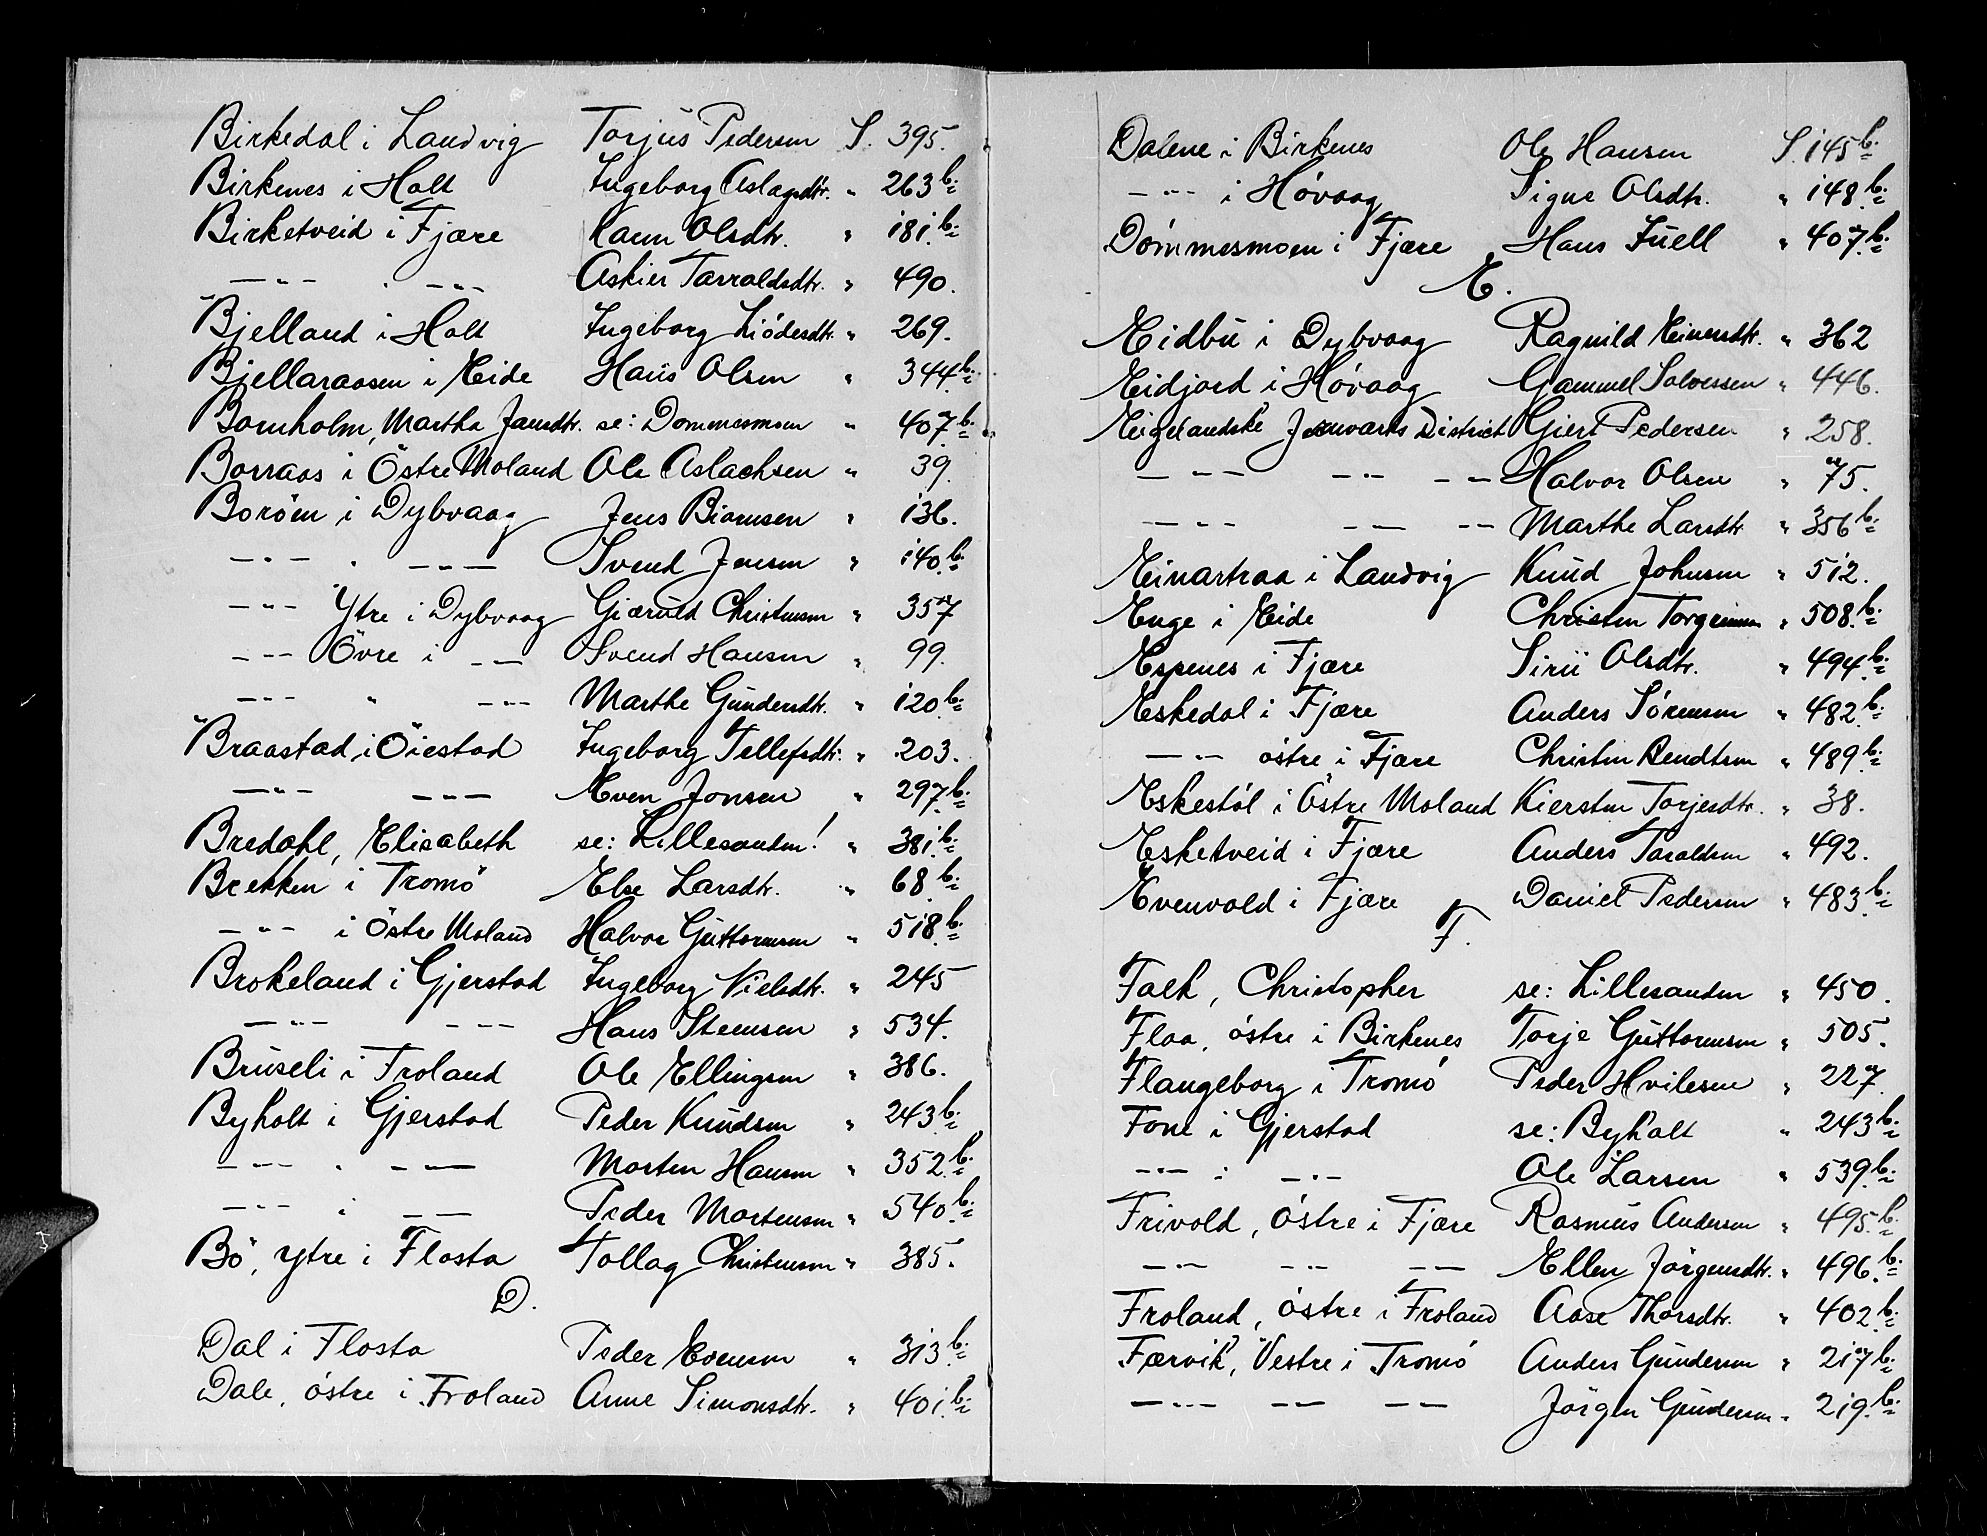 Birkedal i Landvig Torjus Pedersen S. 395.
Birkenes i Holt Ingeborg Aslagsdtr. " 263 b.
Birketveid i Fjære Karen Olsdtr. " 181. b.
— " — " — " — Askier Tarraldsdtr. " 490.
Bjelland i Holt Ingeborg Liødesdtr. " 269.
Bjellaraasen i Eide Hans Olsen " 344 b.
Bornholm, Martha Jansdtr. se: Dømmesmoen " 407. b.
Borraas i Östre Moland Ole Aslachsen " 39.
Borøen i Dybvaag Jens Biørnsen " 136.
— " — " — " — Svend Jensen " 140. b.
— " — Ytre i Dybvaag Gjæruld Christensen " 357
— " — Övre i — " — Svend Hansen " 99.
— " — " — " — Marthe Gundersdtr. " 120. b.
Braastad i Öiestad Ingeborg Tellefsdtr. " 203.
— " — — " — Even Jonsen " 297. b.
Bredahl, Elisabeth se: Lillesanden! " 381. b.
Brekken i Tromö Else Larsdtr. " 68. b.
— " — i Östre Moland Halvor Guttormsen " 518. b.
Brokeland i Gjerstad Ingeborg Nielsdtr. " 245
— " — — " — Hans Steensen " 534.
Bruseli i Froland Ole Ellingsen " 386.
Byholt i Gjerstad Peder Knudsen " 243. b.
— " — " — " — Morten Hansen " 352. b.
— " — i — " — Peder Mortensen " 540. b.
Bö, ytre i Flosta Tollag Christensen " 385.
D.
Dal i Flosta Peder Evensen " 313. b.
Dale, östre i Froland Anne Simonsdtr. " 401. b.
Dalene i Birkenes Ole Hansen S. 145 b.
— " — i Høvaag Signe Olsdtr. " 148. b.
Dömmesmoen i Fjære Hans Juell " 407. b.
E.
Eidbu i Dybvaag Ragnild Einersdtr. " 362
Eidjord i Høvaag Gammel Salvessen " 446.
Eigelandske Jernværks District Gjert Pedersen " 258.
— " — — " — — " — Halvor Olsen " 75.
— " — — " — — " — Marthe Larsdtr " 356 b.
Einartraa i Landvig Knud Johnsen " 512.
Enge i Eide Christen Torgrimsen " 508. b.
Espenes i Fjære Siri Olsdtr. " 494. b.
Eskedal i Fjære Anders Sörensen " 482. b.
— " — östre i Fjære Christen Bendtsen " 489. b.
Eskestöl i Östre Moland Kiersten Torjesdtr. " 38.
Esketveid i Fjære Anders Taraldsen " 492.
Evenvold i Fjære Daniel Pedersen " 483. b.
F.
Falk, Christopher se: Lillesanden " 450.
Flaa, östre i Birkenes Torje Guttormsen " 505.
Flangeborg i Tromö Peder Hvilesen " 227.
Fone i Gjerstad se: Byholt " 243 b.
— " — i — " — Ole Larsen " 539. b.
Frivold, östre i Fjære Rasmus Andersen " 495. b.
— " — — " — — " — Ellen Jörgensdtr. " 496. b.
Froland, östre i Froland Aase Thorsdtr. " 402. b.
Færvik, Vestre i Tromö Anders Gundersen " 217 b.
— " — — " — — " — Jörgen Gundersen " 219. b.